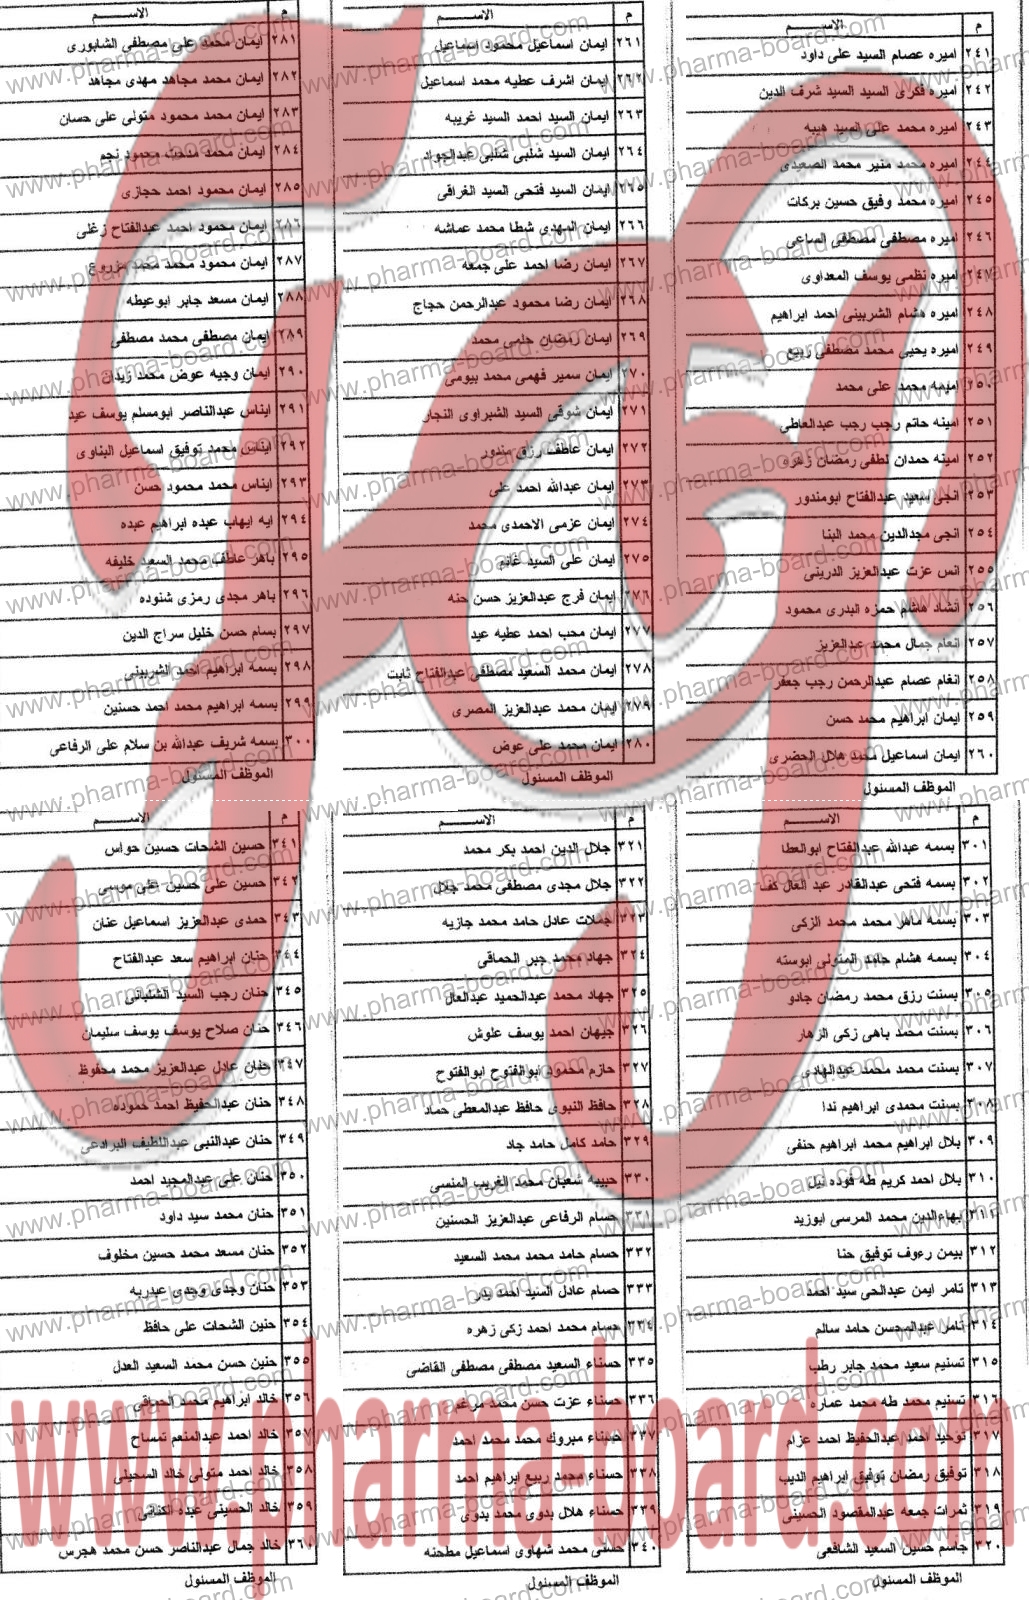 م الاســـــم
٢٤١ اميره عصام السيد على داود
٢٤٢ اميره فكرى السيد السيد شرف الدين
٢٤٣ اميره محمد على السيد هيبه
٢٤٤ اميره محمد منير محمد الصعيدى
٢٤٥ اميره محمد وفيق حسين بركات
٢٤٦ اميره مصطفى مصطفى الساعى
٢٤٧ اميره نظمى يوسف المعداوى
٢٤٨ اميره هشام الشربينى احمد ابراهيم
٢٤٩ اميره يحيى محمد مصطفى ربيع
٢٥٠ اميمه محمد على محمد
٢٥١ امينه حاتم رجب رجب عبدالعاطى
٢٥٢ امينه حمدان لطفى رمضان زهره
٢٥٣ انجى سعيد عبدالفتاح ابومندور
٢٥٤ انجى مجدالدين محمد البنا
٢٥٥ انس عزت عبدالعزيز الدرينى
٢٥٦ انشاد هاشم حمزه البدرى محمود
٢٥٧ انعام جمال محمد عبدالعزيز
٢٥٨ انغام عصام عبدالرحمن رجب جعفر
٢٥٩ ايمان ابراهيم محمد حسن
٢٦٠ ايمان اسماعيل محمد هلال الحضرى
الموظف المسئول
م الاســـــم
٢٦١ ايمان اسماعيل محمود اسماعيل
٢٦٢ ايمان اشرف عطيه محمد اسماعيل
٢٦٣ ايمان السيد احمد السيد غريبه
٢٦٤ ايمان السيد شلبى شلبى عبدالجواد
٢٦٥ ايمان السيد فتحى السيد الغراقى
٢٦٦ ايمان المهدى شطا محمد عماشه
٢٦٧ ايمان رضا احمد على جمعه
٢٦٨ ايمان رضا محمود عبدالرحمن حجاج
٢٦٩ ايمان رمضان حلمى محمد
٢٧٠ ايمان سمير فهمى محمد بيومى
٢٧١ ايمان شوقى السيد الشبراوى النجار
٢٧٢ ايمان عاطف رزق مندور
٢٧٣ ايمان عبدالله احمد على
٢٧٤ ايمان عزمى الاحمدى محمد
٢٧٥ ايمان على السيد غانم
٢٧٦ ايمان فرج عبدالعزيز حسن حنه
٢٧٧ ايمان محب احمد عطيه عيد
٢٧٨ ايمان محمد السعيد مصطفى عبدالفتاح ثابت
٢٧٩ ايمان محمد عبدالعزيز المصرى
٢٨٠ ايمان محمد على عوض
الموظف المسئول
م الاســـــم
٢٨١ ايمان محمد على مصطفى الشابورى
٢٨٢ ايمان محمد مجاهد مهدى مجاهد
٢٨٣ ايمان محمد محمود متولى على حسان
٢٨٤ ايمان محمد مدحت محمود نجم
٢٨٥ ايمان محمود احمد حجازى
٢٨٦ ايمان محمود احمد عبدالفتاح زغلى
٢٨٧ ايمان محمود محمد محمد مزروع
٢٨٨ ايمان مسعد جابر ابوعيطه
٢٨٩ ايمان مصطفى محمد مصطفى
٢٩٠ ايمان وجيه عوض محمد زيدان
٢٩١ ايناس عبدالناصر ابومسلم يوسف عيد
٢٩٢ ايناس محمد توفيق اسماعيل البناوى
٢٩٣ ايناس محمد محمود حسن
٢٩٤ ايه ايهاب عبده ابراهيم عبده
٢٩٥ باهر عاطف محمد السعيد خليفه
٢٩٦ باهر مجدى رمزى شنوده
٢٩٧ بسام حسن خليل سراج الدين
٢٩٨ بسمه ابراهيم احمد الشربينى
٢٩٩ بسمه ابراهيم محمد احمد حسنين
٣٠٠ بسمه شريف عبدالله بن سلام على الرفاعى
الموظف المسئول
م الاســـــم
٣٠١ بسمه عبدالله عبدالفتاح ابوالعطا
٣٠٢ بسمه فتحى عبدالقادر عبد العال كف
٣٠٣ بسمه ماهر محمد محمد الزكى
٣٠٤ بسمه هشام حامد المتولى ابوسته
٣٠٥ بسنت رزق محمد رمضان جادو
٣٠٦ بسنت محمد باهى زكى الزهار
٣٠٧ بسنت محمد محمد عبدالهادى
٣٠٨ بسنت محمدى ابراهيم ندا
٣٠٩ بلال ابراهيم محمد ابراهيم حنفى
٣١٠ بلال احمد كريم طه فوده نيل
٣١١ بهاءالدين محمد المرسى ابوزيد
٣١٢ بيمن رءوف توفيق حنا
٣١٣ تامر ايمن عبدالحى سيد احمد
٣١٤ تامر عبدالمحسن حامد سالم
٣١٥ تسنيم سعيد محمد جابر رطب
٣١٦ تسنيم محمد طه محمد عماره
٣١٧ توحيد احمد عبدالحفيظ احمد عزام
٣١٨ توفيق رمضان توفيق ابراهيم الديب
٣١٩ ثمرات جمعه عبدالمقصود الحسينى
٣٢٠ جاسم حسين السعيد الشافعى
الموظف المسئول
م الاســـــم
٣٢١ جلال الدين احمد بكر محمد
٣٢٢ جلال مجدى مصطفى محمد جلال
٣٢٣ جملات عادل حامد محمد جازيه
٣٢٤ جهاد محمد جبر الحماقى
٣٢٥ جهاد محمد عبدالحميد عبدالعال
٣٢٦ جيهان احمد يوسف علوش
٣٢٧ حازم محمود ابوالفتوح ابوالفتوح
٣٢٨ حافظ النبوى حافظ عبدالمعطى حماد
٣٢٩ حامد كامل حامد جاد
٣٣٠ حبيبه شعبان محمد الغريب المنسى
٣٣١ حسام الرفاعى عبدالعزيز الحسنين
٣٣٢ حسام حامد محمد محمد السعيد
٣٣٣ حسام عادل السيد احمد بدر
٣٣٤ حسام محمد احمد زكى زهره
٣٣٥ حسناء السعيد مصطفى مصطفى القاضى
٣٣٦ حسناء عزت حسن محمد مرغم
٣٣٧ حسناء مبروك محمد محمد احمد
٣٣٨ حسناء محمد ربيع ابراهيم احمد
٣٣٩ حسناء هلال بدوى محمد بدوى
٣٤٠ حسنى محمد شهاوى اسماعيل مطحنه
الموظف المسئول
م الاســـــم
٣٤١ حسين الشحات حسين حواس
٣٤٢ حسين على حسين على موسى
٣٤٣ حمدى عبدالعزيز اسماعيل عنان
٣٤٤ حنان ابراهيم سعد عبدالفتاح
٣٤٥ حنان رجب السيد الشلبانى
٣٤٦ حنان صلاح يوسف يوسف سليمان
٣٤٧ حنان عادل عبدالعزيز محمد محفوظ
٣٤٨ حنان عبدالحفيظ احمد حموده
٣٤٩ حنان عبدالنبى عبداللطيف البرادعى
٣٥٠ حنان على عبدالمجيد احمد
٣٥١ حنان محمد سيد داود
٣٥٢ حنان مسعد محمد حسين مخلوف
٣٥٣ حنان وجدى وجدى عبدربه
٣٥٤ حنين الشحات على حافظ
٣٥٥ حنين حسن محمد السعيد العدل
٣٥٦ خالد ابراهيم محمد الحوراقى
٣٥٧ خالد احمد عبدالمنعم تمساح
٣٥٨ خالد احمد متولى خالد السحيلى
٣٥٩ خالد الحسينى عبده الكنانى
٣٦٠ خالد جمال عبدالناصر حسن محمد هجرس
الموظف المسئول
www.pharma-board.com